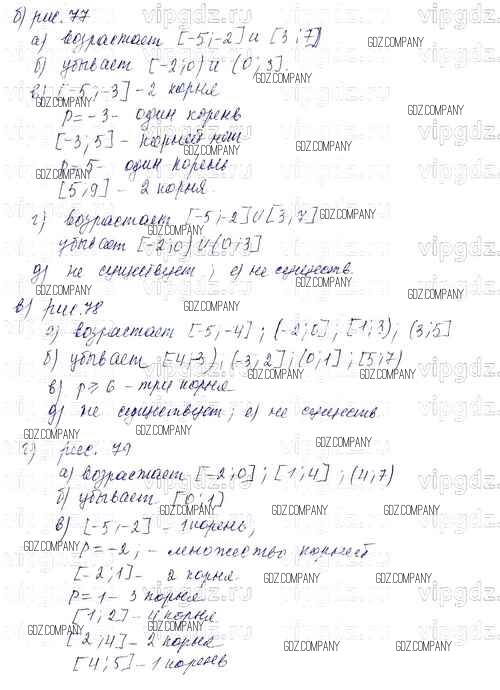 б) рис. 77
а) возрастает [-5;-2] и [3;7]
б) убывает [-2;0) и (0;3].
в) [-5;-3] - 2 корня
p=-3 - один корень
[-3;5] - корней нет
p=5 - один корень
[5;9] - 2 корня.
г) возрастает [-5;-2]U[3;7]
убывает [-2;0)U(0;3]
д) не существует; е) не существ.
в) рис. 78
а) возрастает [-5,-4]; (-2;0]; [1;3), (3;5]
б) убывает [4,-3), (-3,2]; (0;1]; [5;7)
в) p⩾6 - три корня
д) не существует; е) не существ.
г) рис. 79
а) возрастает [-2;0]; [1;4]; (4;7)
б) убывает [0;1)
в) [-5;-2] - 1 корень,
p=-2, - множество корней
[-2;1] - 2 корня.
p=1 - 3 корня
[1;2] - 4 корня
[2;4] - 2 корня
[4;5] - 1 корень